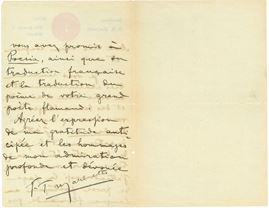 vous avez promis à
Poesia, ainsi que son
traduction française
et la traduction du
poème de votre grand
poète flamand.
Agréez l'expression
de ma gratitude anti
cipée et les hommages
de mon admiration
profonde et dévouée
F. T. Marinetti